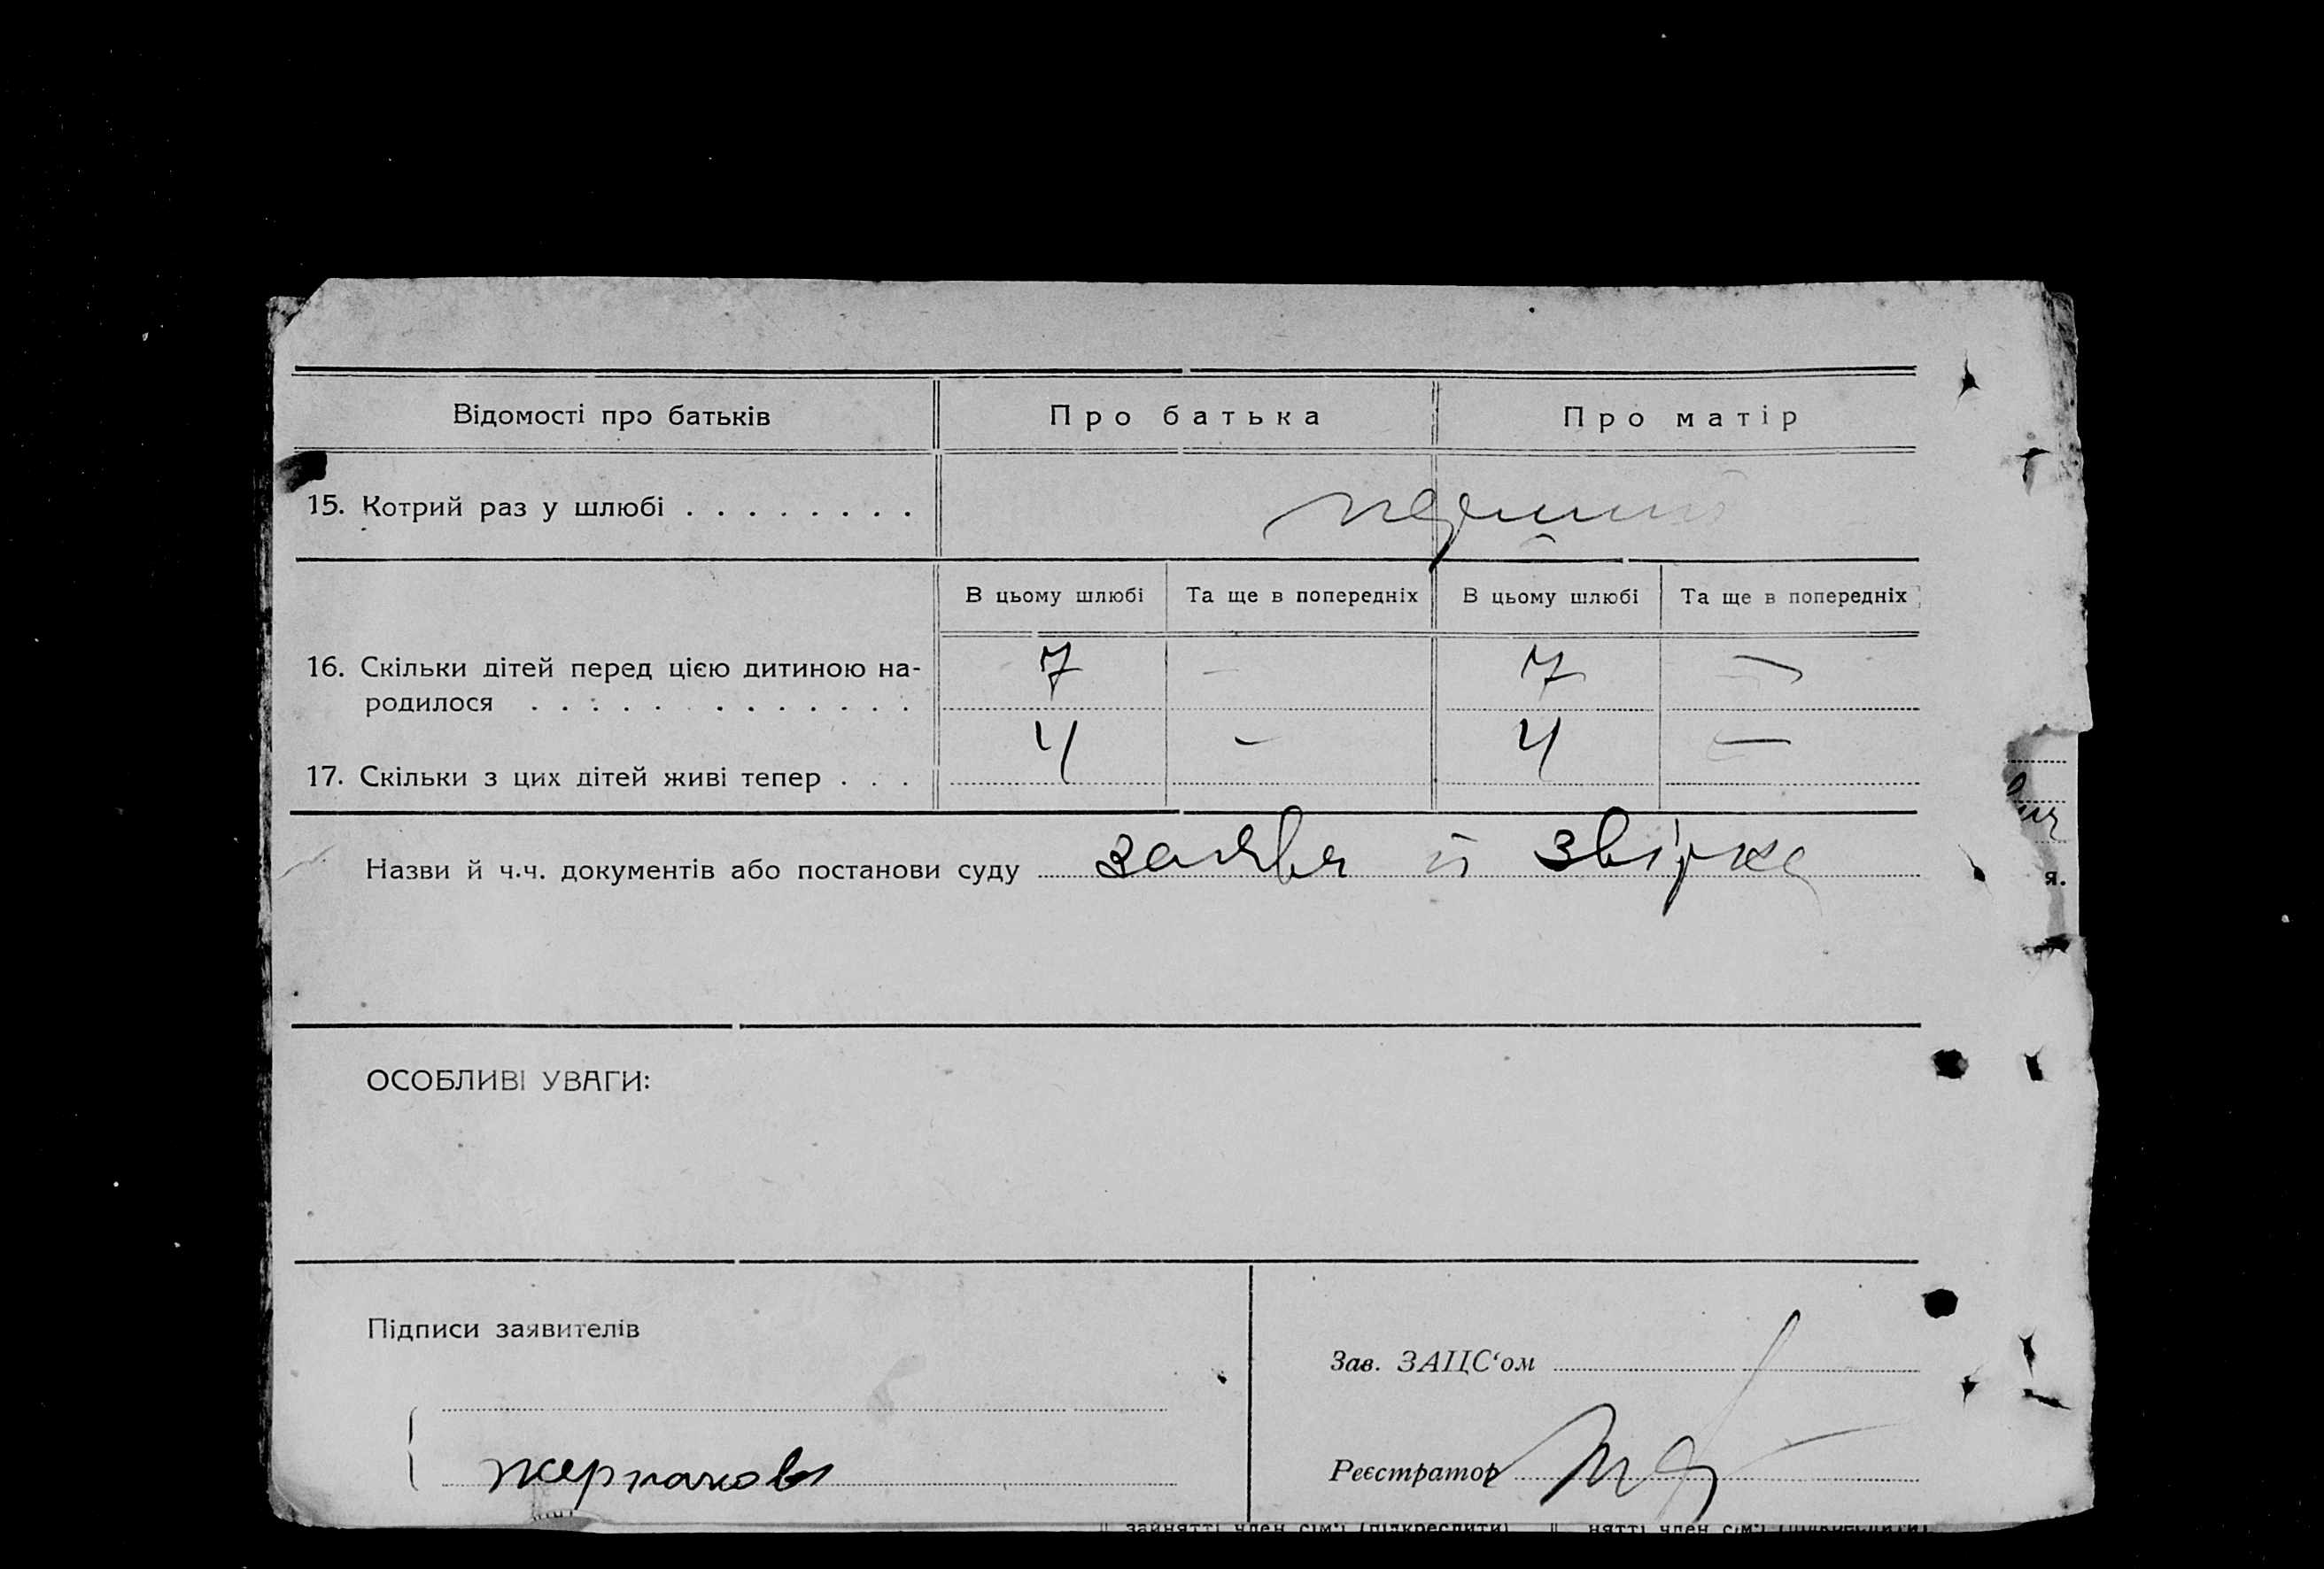 Відомості про батьків
Про батька
Про матір
15. Котрий раз у шлюбі . . . . . . . .
В цьому шлюбі
Та ще в попередніх
В цьому шлюбі
Та ще в попередніх
16. Скільки дітей перед цією дитиною на-
родилося . . . . . . . . . . . . .
7 - 7 -
17. Скільки з цих дітей живі тепер . . .
4 - 4 -
Назви й ч.ч. документів або постанови суду заява й звірка
ОСОБЛИВІ УВАГИ:
Підписи заявителів
Зав. ЗАЦС‘ом
Реєстратор
я.
зайнятті член сім'ї (підкреслити)
нятті член сім'ї (підкреслити)